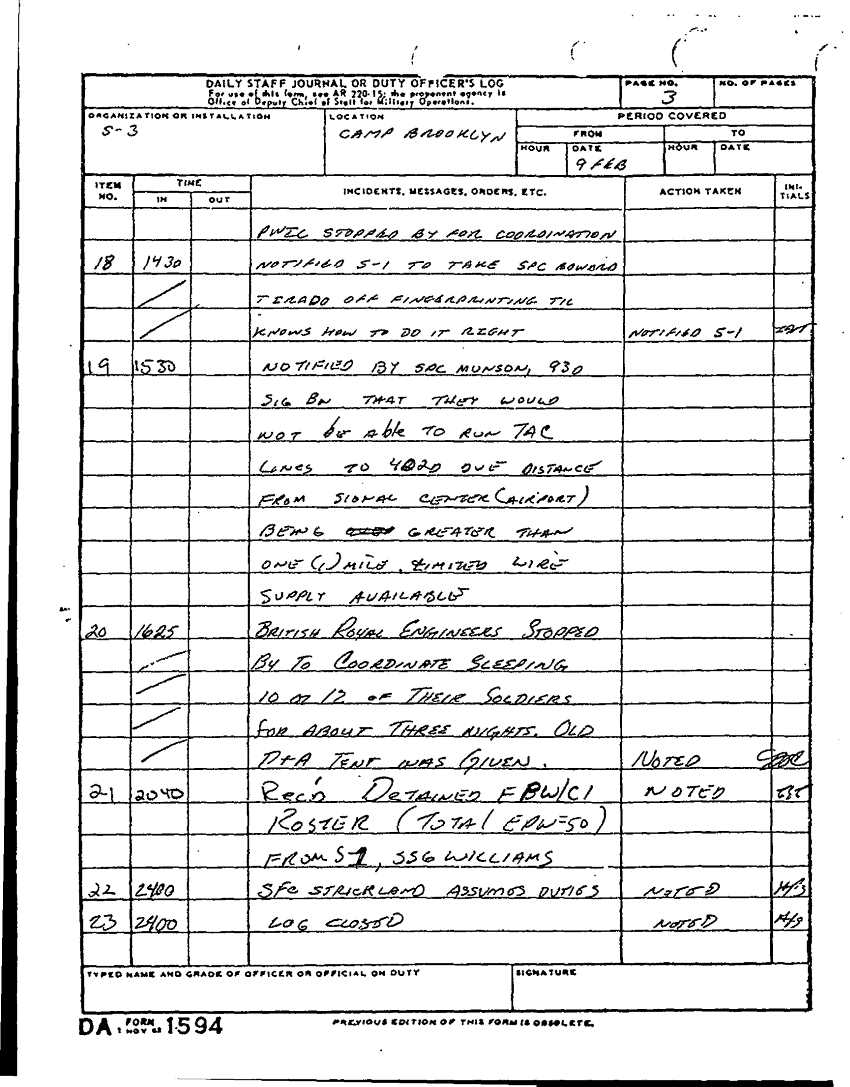 DAILY STAFF JOURNAL OR DUTY OFFICER'S LOG
For use of this form, see AR 220-15; the proponent agency is
Office of Deputy Chief of Staff for Military Operations.
PAGE NO.
3
NO. OF PAGES
ORGANIZATION OR INSTALLATION
S-3
LOCATION
CAMP BROOKLYN
PERIOD COVERED
FROM
TO
HOUR
DATE
9 FEB
HOUR
DATE
ITEM NO.
TIME
IN
OUT
INCIDENTS, MESSAGES, ORDERS, ETC.
ACTION TAKEN
INI-TIALS
PWIC STOPPED BY FOR COORDINATION
18 1430 NOTIFIED S-1 TO TAKE SPC
TIRADO OFF FINGERPRINTING TIL
KNOWS HOW TO DO IT RIGHT NOTIFIED S-1
19 1530 NOTIFIED BY SPC MUNSON, 930
SIG BN THAT THEY WOULD
NOT be Able TO RUN TAC
LINES TO DUE DISTANCE
FROM SIGNAL CENTER (AIRPORT)
BEING GREATER THAN
ONE (1) MILE. LIMITED WIRE
SUPPLY AVAILABLE
20 1625 BRITISH ROYAL ENGINEERS STOPPED
BY TO COORDINATE SLEEPING
10 or 12 OF THEIR SOLDIERS
FOR ABOUT THREE NIGHTS. OLD
TENT WAS GIVEN. NOTED
21 2040 REC'D DETAINED EPW/CI NOTED
ROSTER (TOTAL EPW=50)
FROM S1, SSG WILLIAMS
22 2400 SFC STRICKLAND ASSUMES DUTIES NOTED
23 2400 LOG CLOSED NOTED
TYPED NAME AND GRADE OF OFFICER OR OFFICIAL ON DUTY
SIGNATURE
DA FORM 1594
1 NOV 62
PREVIOUS EDITION OF THIS FORM IS OBSOLETE.